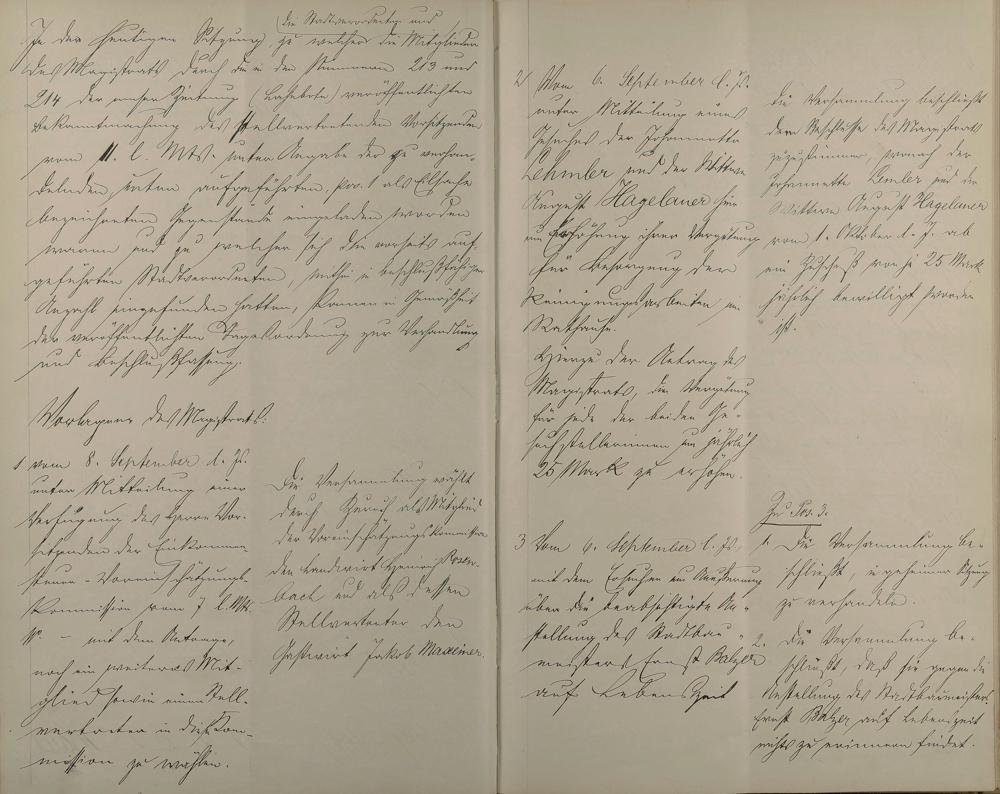 die Stadtverordneten und
In der heutigen Sitzung, zu welcher die Mitglieder
des Magistrats durch die in den Nummern 213 und
214 der neuen Zeitung (Lahnbote) veröffentlichten
Bekanntmachung des stellvertretenden Vorsitzenden
vom 11. l. Mts. unter Angabe der zu verhan-
delnden, unten aufgeführten, pos. 1 als Eilsache
bezeichneten Gegenstände eingeladen worden
waren und zu welcher sich die vorseits auf-
geführten Stadtverordneten, mithin in beschlußfähiger
Anzahl eingefunden hatten, kamen in Gemäßheit
der veröffentlichten Tagesordnung zur Verhandlung
und Beschlußfassung:
Vorlagen des Magistrats.
1 vom 8. September d. Js.
unter Mitteilung einer
Verfügung des Herrn Vor-
sitzenden der Einkommen-
steuer-Voreinschätzungs-
Kommission vom 7 l. Mts.
– mit dem Antrage,
noch ein weiteres Mit-
glied sowie einen Stell-
vertreter in diese Kom-
mission zu wählen.
Die Versammlung wählt
durch Zuruf als Mitglied
der Voreinschätzungskommission
den Landwirt Heinrich Rosen-
bach und als dessen
Stellvertreter den
Gastwirt Jakob Maxeiner.
2 Vom 6. September l. Js.
unter Mitteilung eines
Gesuches der Johannette
Lehmler und der Wittwe
August Hagelauer hier
um Erhöhung ihrer Vergütung
für Besorgung der
Reinigungsarbeiten im
Rathause.
Hierzu der Antrag des
Magistrats, die Vergütung
für jede der beiden Ge-
suchstellerinnen um jährlich
25 Mark zu erhöhen.
Die Versammlung beschließt
dem Beschlusse des Magistrats
zuzustimmen, wonach der
Johannette Lemler und der
Wittwe August Hagelauer
vom 1. Oktober d. J. ab
ein Zuschuß von je 25 Mark
jährlich bewilligt worden
ist.
3 Vom 6. September l. Js.
mit dem Ersuchen um Äußerung
über die beabsichtigte An-
stellung des Stadtbau-
meisters Ernst Balzer
auf Lebenszeit
Zu Pos. 3.
1. Die Versammlung be-
schließt, in geheimer Sitzung
zu verhandeln.
2. Die Versammlung be-
schließt, daß sie gegen die
Anstellung des Stadtbaumeisters
Ernst Balzer auf Lebenszeit
nichts zu erinnern findet.